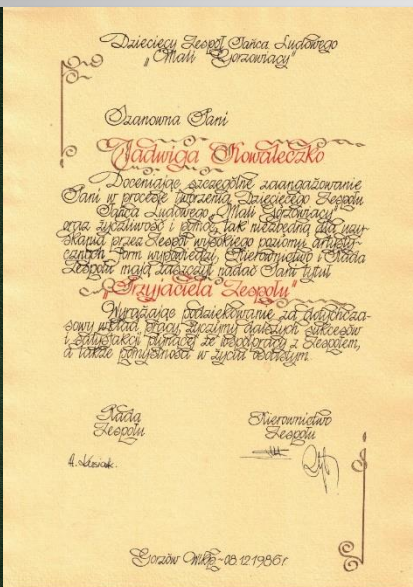 Dziecięcy Zespół Tańca Ludowego
"Mali Gorzowiacy"
Szanowna Pani
Jadwiga Kowaleczko
Doceniając szczególne zaangażowanie
Pani w procesie tworzenia Dziecięcego Zespołu
Tańca Ludowego "Mali Gorzowiacy"
oraz życzliwość i pomoc tak niezbędną dla uzy-
skania przez Zespół wysokiego poziomu artysty-
cznych form wypowiedzi, Kierownictwo i Rada
Zespołu mają zaszczyt nadać Pani tytuł
"Przyjaciela Zespołu"
Wyrażając podziękowanie za dotychcza-
sowy wkład pracy, życzymy dalszych sukcesów
i satysfakcji płynącej ze współpracy z Zespołem,
a także pomyślności w życiu osobistym.
Rada Kierownictwo
Zespołu Zespołu
Gorzów Wlkp. 08.12.1986r.